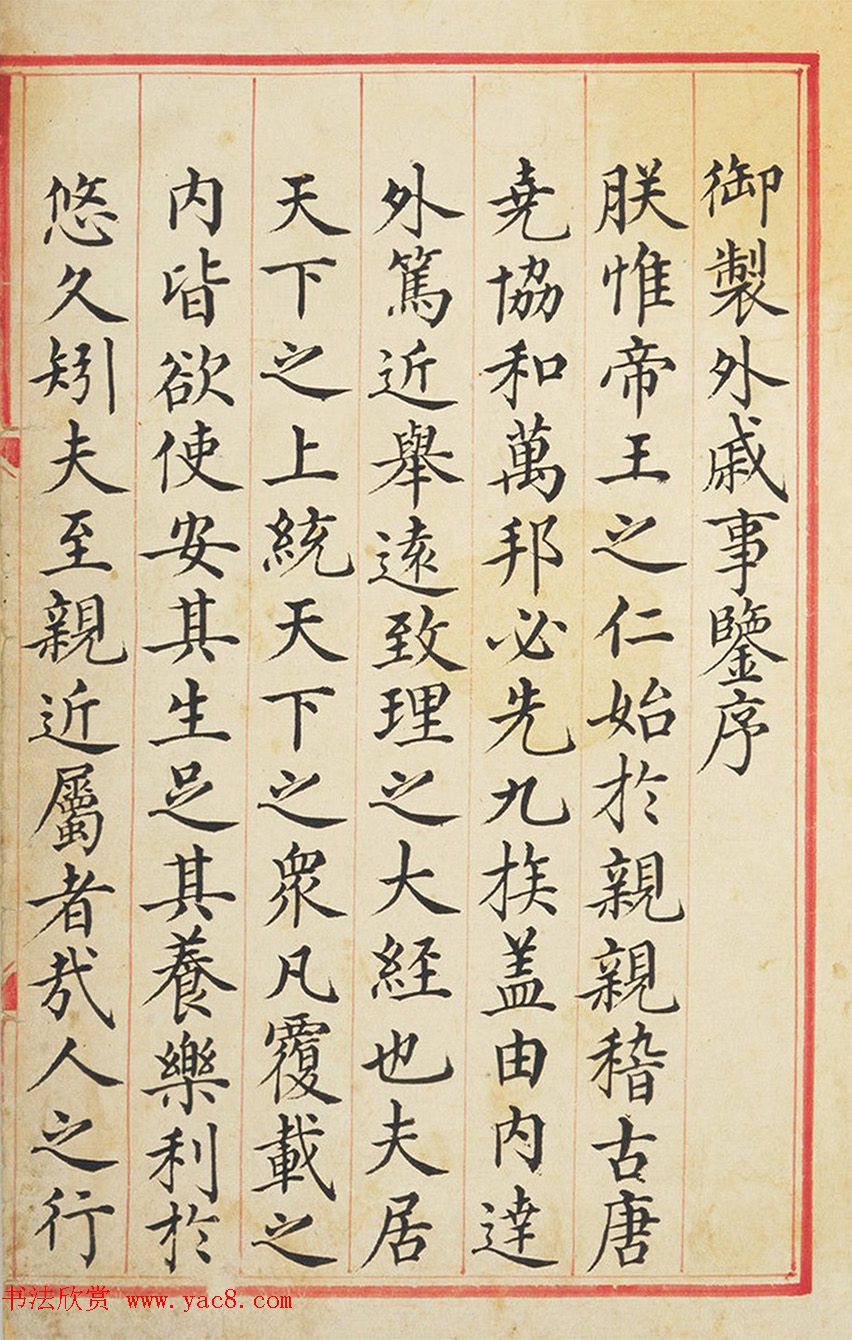 御製外戚事鑒序
朕惟帝王之仁始於親親稽古唐
堯協和萬邦必先九族蓋由内達
外篤近舉遠致理之大經也夫居
天下之上統天下之衆凡覆載之
内皆欲使安其生足其養樂利於
悠久矧夫至親近屬者哉人之行
书法欣赏 www.yac8.com